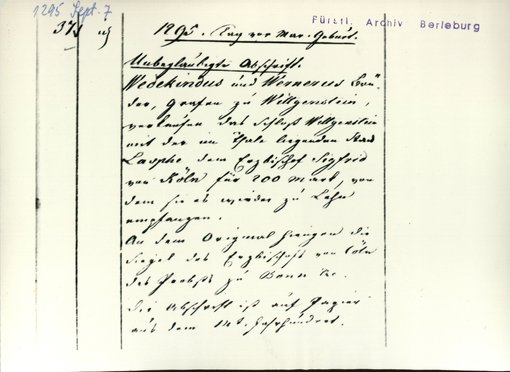 1295 Sept. 7
Fürstl. Archiv Berleburg
37
1295. Tag vor Mar. Geburt.
Unbeglaubigte Abschrift.
Wedekindus und Wernerus Brü-
der, Grafen zu Wittgenstein,
verkaufen das Schloß Wittgenstein
mit der im Thale liegenden Stadt
Lasphe dem Erzbischof Sigfrid
von Köln für 200 Mark, von
dem sie es wieder zu Lehn
empfangen.
An dem Original hiengen die
Siegel des Erzbischofs von Cöln
des Probsts zu Bonn &c.
Die Abschrift ist auf Papier
aus dem 14t. Jahrhundert.